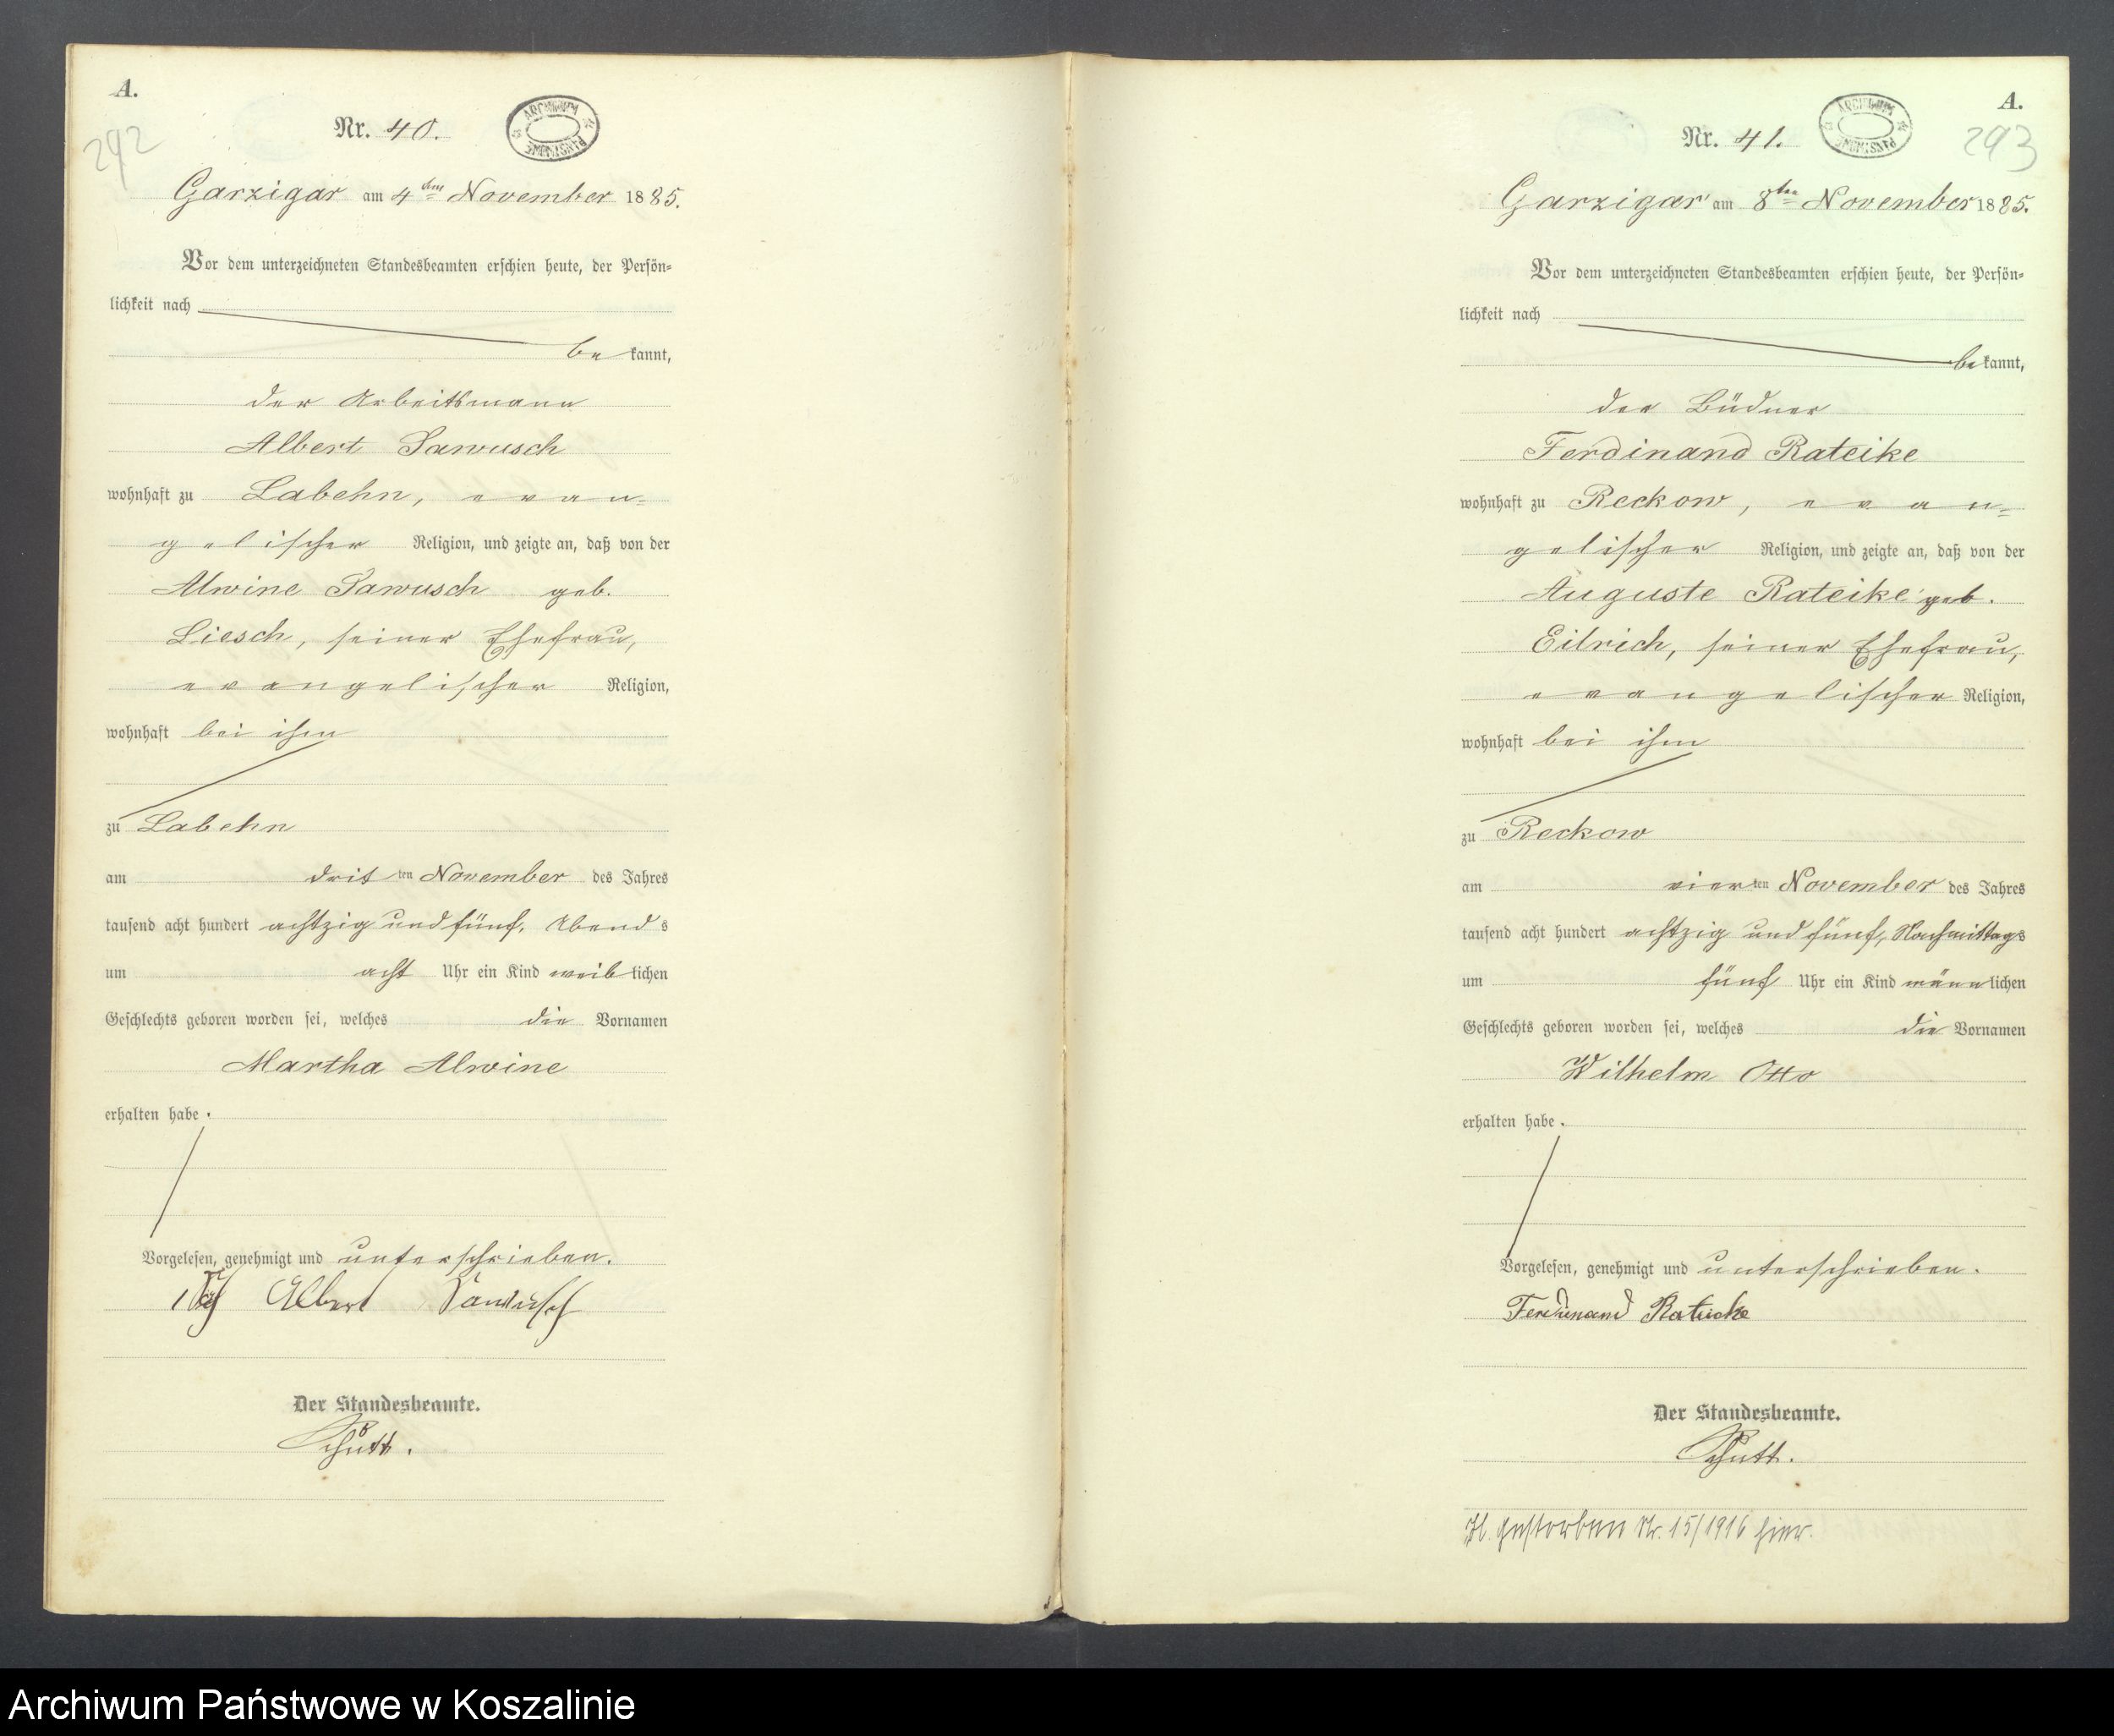 A.
292
Nr. 40.
ARCHIWUM PAŃSTWOWE
Garzigar am 4ten November 1885.
Vor dem unterzeichneten Standesbeamten erschien heute, der Persön=
lichkeit nach
be kannt,
der Arbeitsmann
Albert Sawusch
wohnhaft zu Labehn, evan=
gelischer Religion, und zeigte an, daß von der
Alwine Sawusch geb.
Liesch, seiner Ehefrau,
evangelischer Religion,
wohnhaft bei ihm
zu Labehn
am drit ten November des Jahres
tausend acht hundert achtzig und fünf, Abend s
um acht Uhr ein Kind weib lichen
Geschlechts geboren worden sei, welches die Vornamen
Martha Alwine
erhalten habe.
Vorgelesen, genehmigt und unterschrieben.
Albert Sawusch
Der Standesbeamte.
Schütt.
A.
293
Nr. 41.
ARCHIWUM PAŃSTWOWE
Garzigar am 8ten November 1885.
Vor dem unterzeichneten Standesbeamten erschien heute, der Persön=
lichkeit nach
be kannt,
der Büdner
Ferdinand Rateike
wohnhaft zu Reckow, evan=
gelischer Religion, und zeigte an, daß von der
Auguste Rateike geb.
Eilrich, seiner Ehefrau,
evangelischer Religion,
wohnhaft bei ihm
zu Reckow
am vier ten November des Jahres
tausend acht hundert achtzig und fünf, Nachmittags
um fünf Uhr ein Kind männ lichen
Geschlechts geboren worden sei, welches die Vornamen
Wilhelm Otto
erhalten habe.
Vorgelesen, genehmigt und unterschrieben.
Ferdinand Rateicke
Der Standesbeamte.
Schütt.
gestorben Nr. 15/1916 hier.
Archiwum Państwowe w Koszalinie